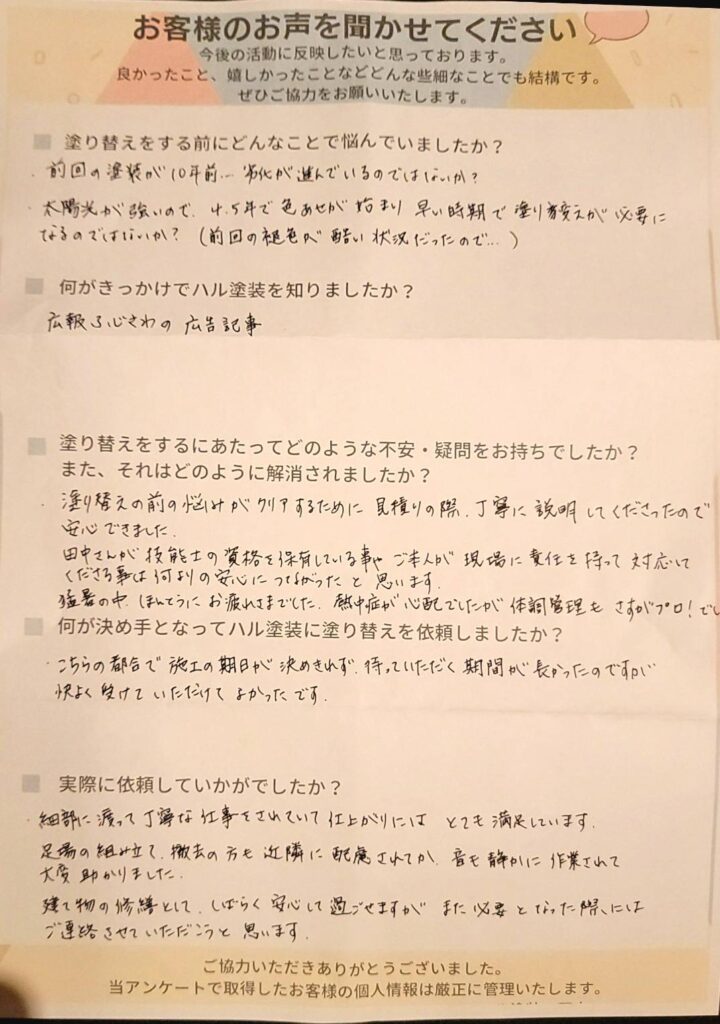 お客様のお声を聞かせてください
今後の活動に反映したいと思っております。
良かったこと、嬉しかったことなどどんな些細なことでも結構です。
ぜひご協力をお願いいたします。
塗り替えをする前にどんなことで悩んでいましたか？
・前回の塗装が10年前… 劣化が進んでいるのではないか？
・太陽光が強いので、4.5年で色あせが始まり 早い時期で塗り変えが必要に
なるのではないか？（前回の褪色が酷い状況だったので…）
何がきっかけでハル塗装を知りましたか？
広報ふじさわの広告記事
塗り替えをするにあたってどのような不安・疑問をお持ちでしたか？
また、それはどのように解消されましたか？
・塗り替えの前の悩みがクリアするために見積りの際、丁寧に説明してくださったので
安心できました。
田中さんが技能士の資格を保有している事や ご本人が現場に責任を持って対応して
くださる事は何よりの安心につながったと思います。
猛暑の中、ほんとうにお疲れさまでした。熱中症が心配でしたが体調管理もさすがプロ！でし
何が決め手となってハル塗装に塗り替えを依頼しましたか？
・こちらの都合で施工の期日が決めきれず、待っていただく期間が長かったのですが
快よく受けていただけてよかったです。
実際に依頼していかがでしたか？
・細部に渡って丁寧な仕事をされていて仕上がりには とても満足しています。
足場の組み立て、撤去の方も近隣に配慮されてか、音も静かに作業されて
大変助かりました。
建て物の修繕として、しばらく安心して過ごせますが また必要となった際には
ご連絡させていただこうと思います。
ご協力いただきありがとうございました。
当アンケートで取得したお客様の個人情報は厳正に管理いたします。